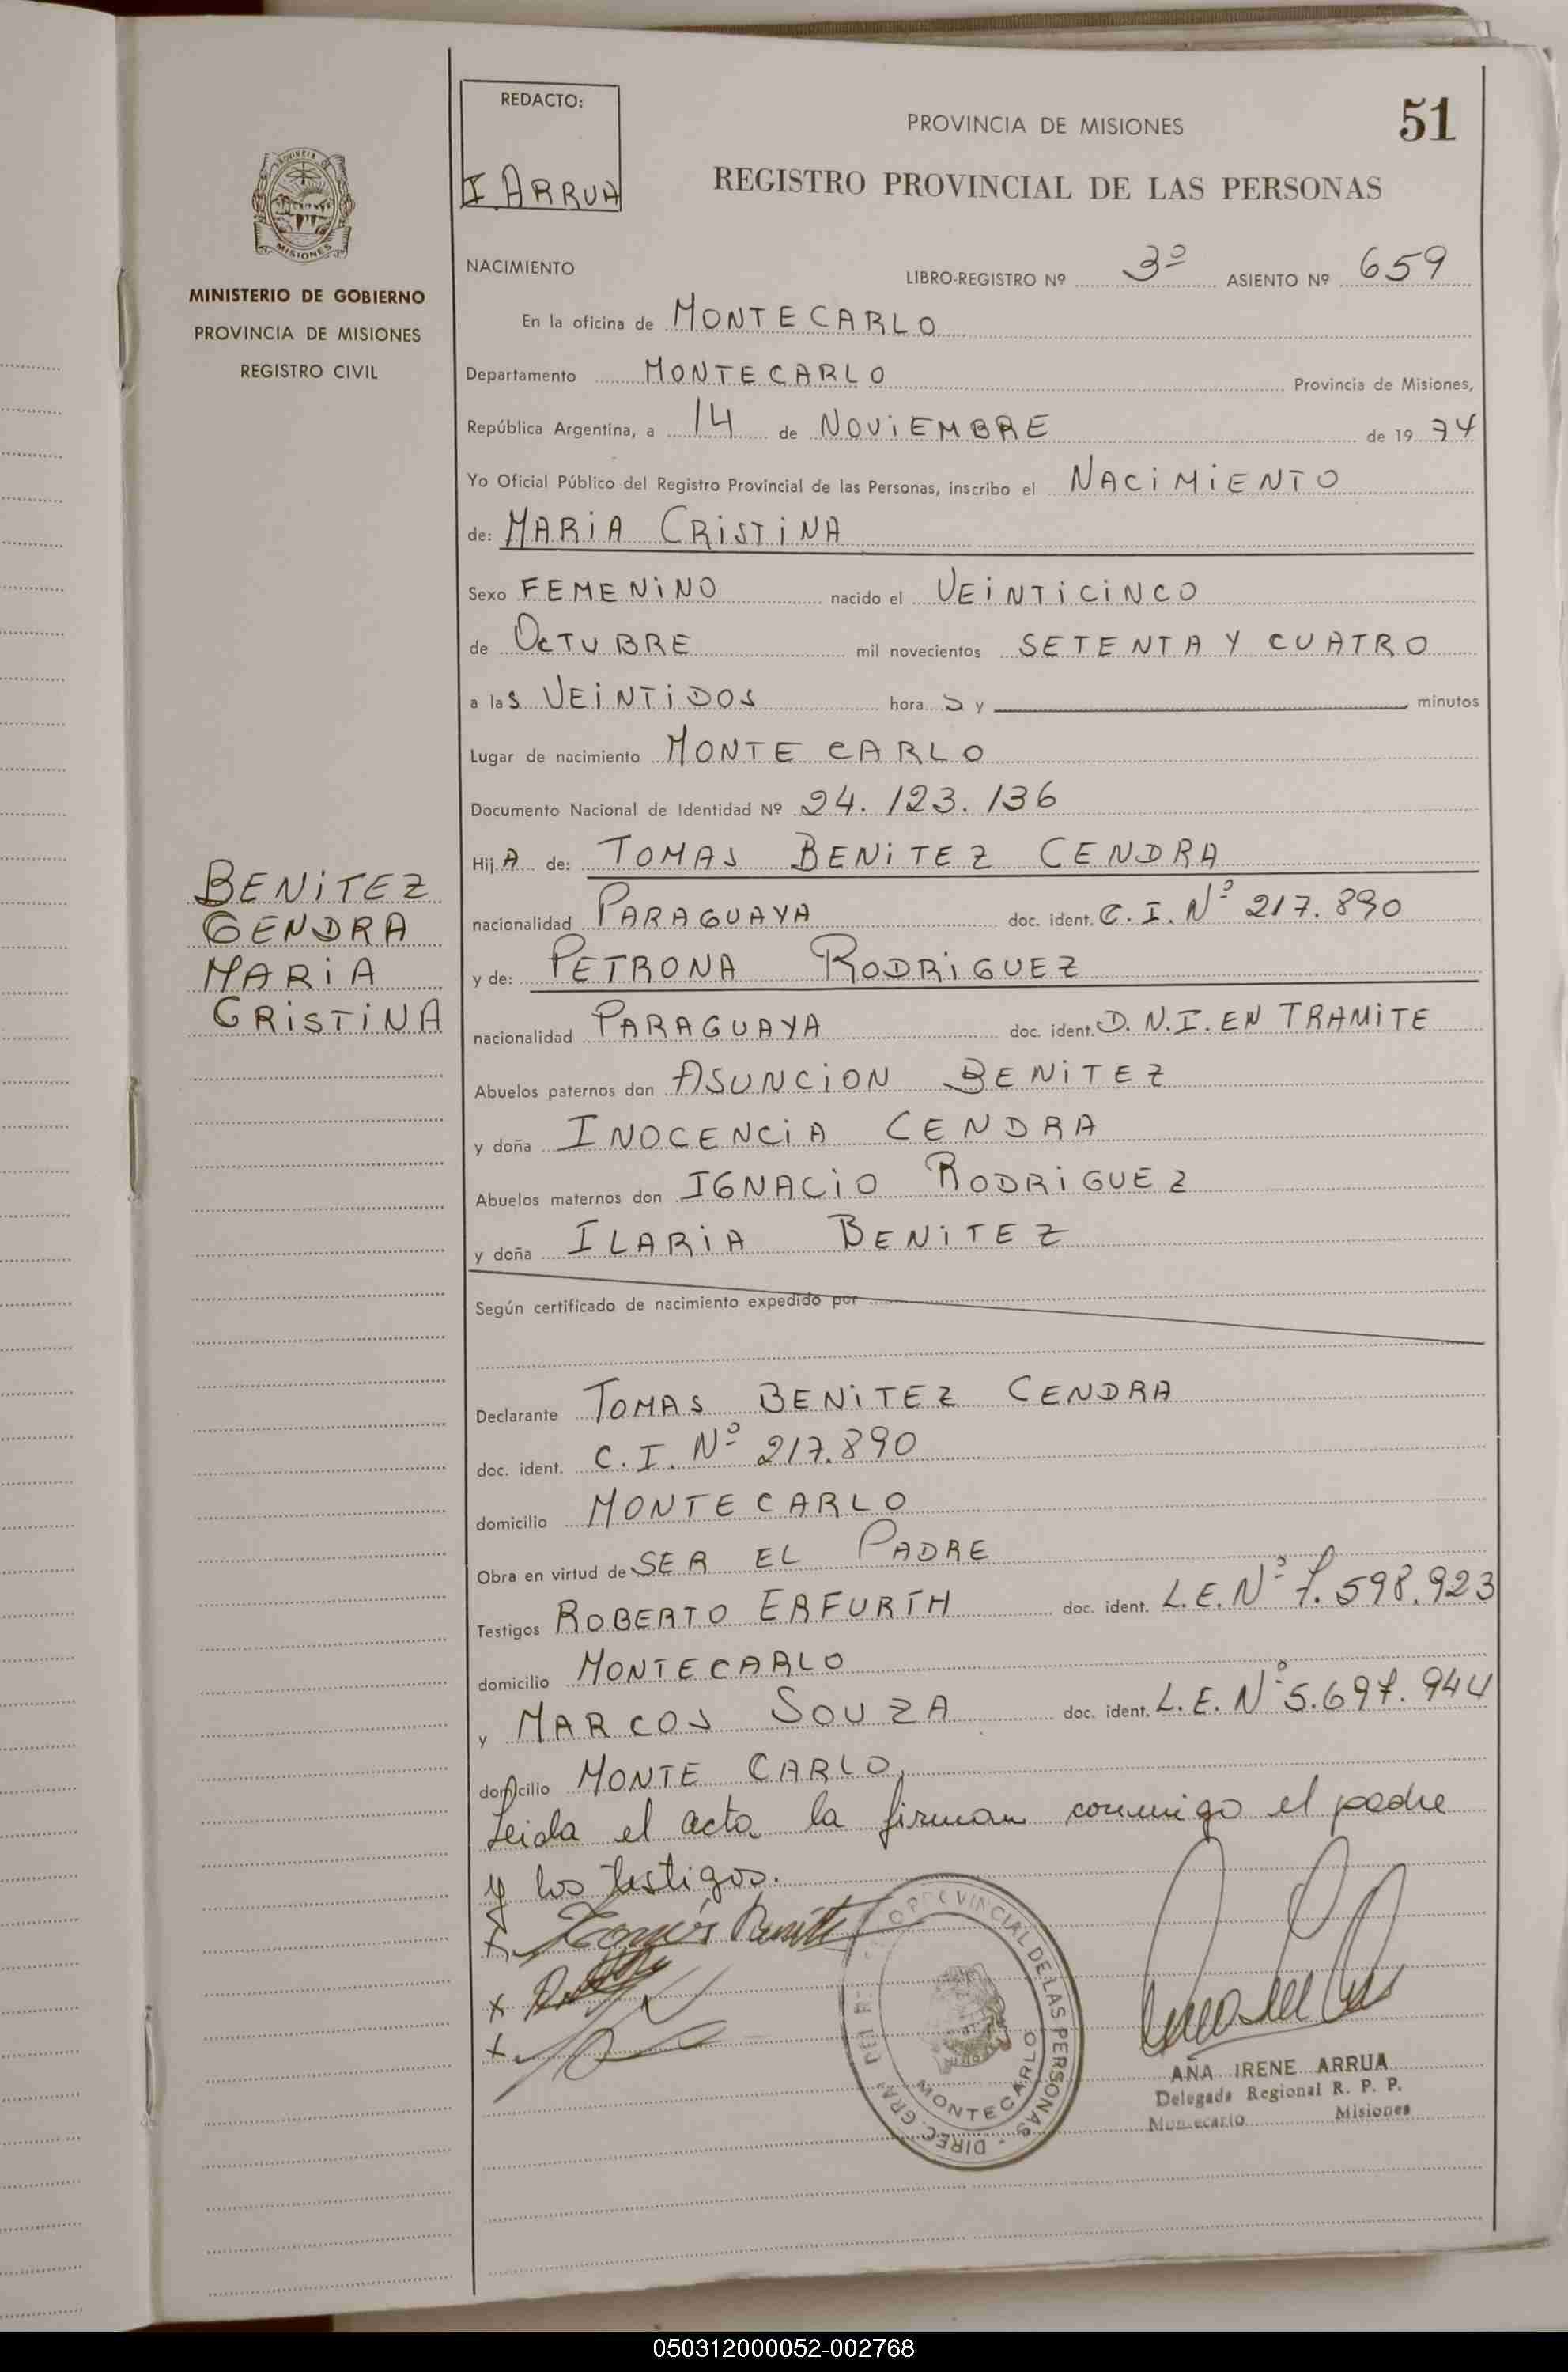 51
REDACTO:
I. ARRUA
PROVINCIA DE MISIONES
REGISTRO PROVINCIAL DE LAS PERSONAS
PROVINCIA DE
MISIONES
MINISTERIO DE GOBIERNO
PROVINCIA DE MISIONES
REGISTRO CIVIL
NACIMIENTO LIBRO-REGISTRO Nº 3º ASIENTO Nº 659
En la oficina de MONTECARLO
Departamento MONTECARLO Provincia de Misiones,
República Argentina, a 14 de NOVIEMBRE de 19 74
Yo Oficial Público del Registro Provincial de las Personas, inscribo el NACIMIENTO
de: MARIA CRISTINA
Sexo FEMENINO nacido el VEINTICINCO
de OCTUBRE mil novecientos SETENTA Y CUATRO
a las VEINTIDOS horas y minutos
Lugar de nacimiento MONTE CARLO
Documento Nacional de Identidad Nº 24.123.136
Hij A de: TOMAS BENITEZ CENDRA
nacionalidad PARAGUAYA doc. ident. C.I. Nº 217.890
y de: PETRONA RODRIGUEZ
nacionalidad PARAGUAYA doc. ident. D.N.I. EN TRAMITE
BENITEZ
CENDRA
MARIA
CRISTINA
Abuelos paternos don ASUNCION BENITEZ
y doña INOCENCIA CENDRA
Abuelos maternos don IGNACIO RODRIGUEZ
y doña ILARIA BENITEZ
Según certificado de nacimiento expedido por
Declarante TOMAS BENITEZ CENDRA
doc. ident. C.I. Nº 217.890
domicilio MONTECARLO
Obra en virtud de SER EL PADRE
Testigos ROBERTO ERFURTH doc. ident. L.E. Nº 7.598.923
domicilio MONTECARLO
y MARCOS SOUZA doc. ident. L.E. Nº 5.697.944
domicilio MONTE CARLO,
Leida el acta la firman conmigo el padre
y los testigos.
x Tomás Benitez
x
x
PROVINCIAL DE LAS PERSONAS - DIREC. GRAL DEL
MONTECARLO
ANA IRENE ARRUA
Delegada Regional R. P. P.
Montecarlo Misiones
050312000052-002768